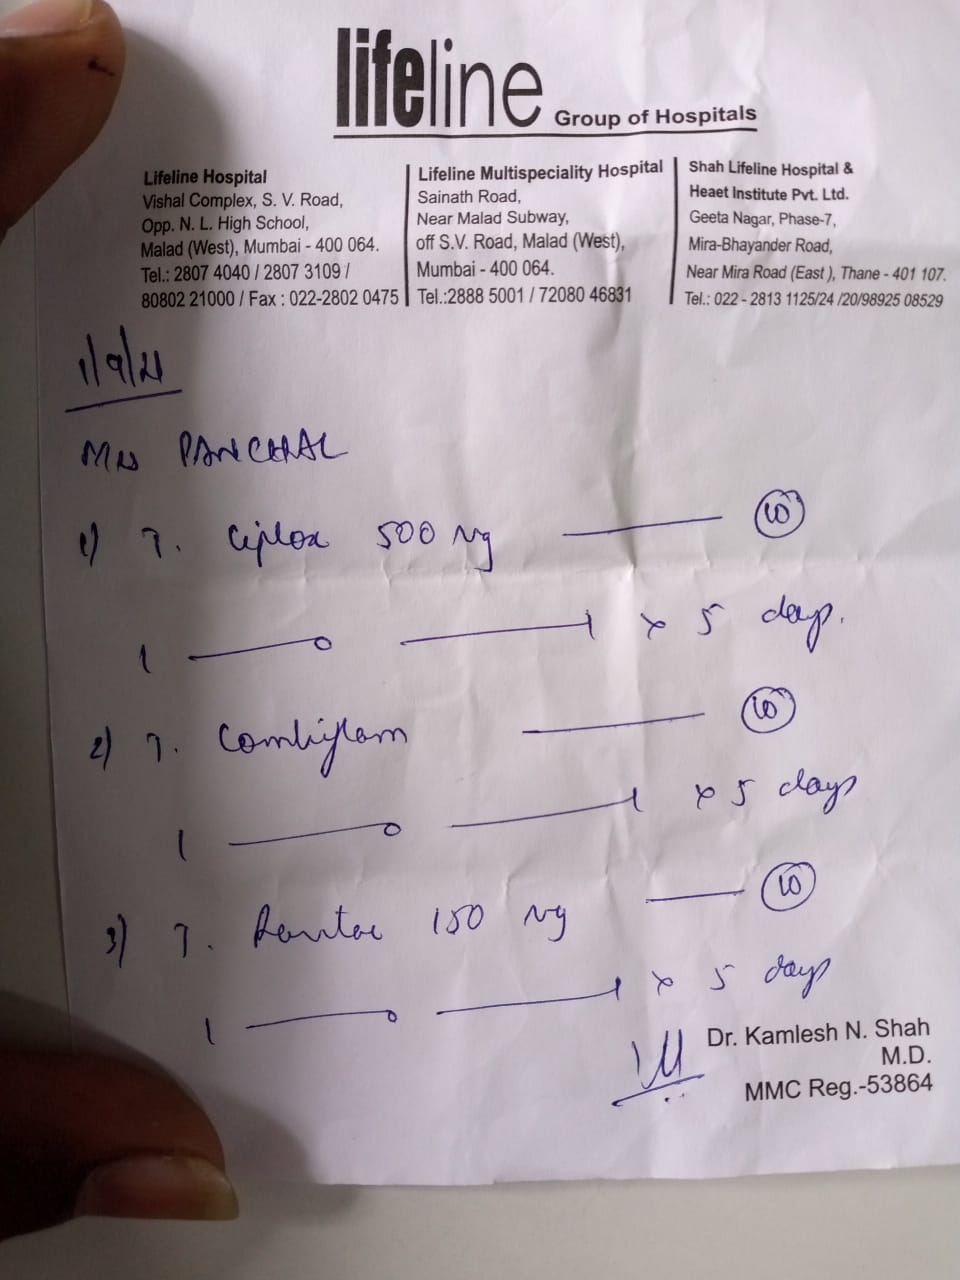 lifeline Group of Hospitals
Lifeline Hospital
Vishal Complex, S. V. Road,
Opp. N. L. High School,
Malad (West), Mumbai - 400 064.
Tel.: 2807 4040 / 2807 3109 /
80802 21000 / Fax : 022-2802 0475
Lifeline Multispeciality Hospital
Sainath Road,
Near Malad Subway,
off S.V. Road, Malad (West),
Mumbai - 400 064.
Tel.:2888 5001 / 72080 46831
Shah Lifeline Hospital &
Heaet Institute Pvt. Ltd.
Geeta Nagar, Phase-7,
Mira-Bhayander Road,
Near Mira Road (East ), Thane - 401 107.
Tel.: 022 - 2813 1125/24 /20/98925 08529
1/9/21
PANCHAL
1) T. Ciplox 500 mg — 10
1 — 0 — 1 x 5 days.
2) T. Combiflam — 10
1 — 0 — 1 x 5 days
3) T. Rantac 150 mg — 10
1 — 0 — 1 x 5 days
Dr. Kamlesh N. Shah
M.D.
MMC Reg.-53864